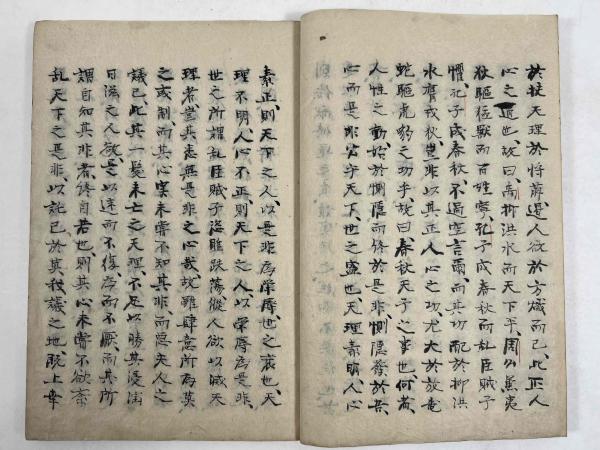 於扶天理於將萠遏人欲於方熾而已此正人
心之道也故曰禹抑洪水而天下平周公兼夷
狄驅猛獸而百姓寧孔子成春秋而乱臣賊子
懼孔子成春秋不過空言爾而其功配於抑洪
水膺戎狄豈非以其正人心之功尤大於放龍
蛇驅虎豹之功乎故曰春秋天子之事也何者
人性之動始於惻隠而終於是非惻隠發於吾
心而是非公乎天下世之盛也天理素明人心
素正則天下之人以是非為榮辱世之衰也天
理不明人心不正則天下之人以榮辱為是非
世之所謂乱臣賊子盗跖跌蕩從人欲以滅天
理者豈其悉無是非之心哉故雖肆意所為莫
之或制而其心実未甞不知其非而恶夫人之
議己此其一髮未亡之天理不足以勝其浸淫
日滋之人欲是以迷而不復為而不厭而其所
謂自知其非者終自若也則其心未甞不欲紊
乱天下之是非以託己於莫我議之地既上幸